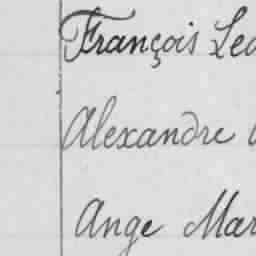 François Led
Alexandre
Ange Mar